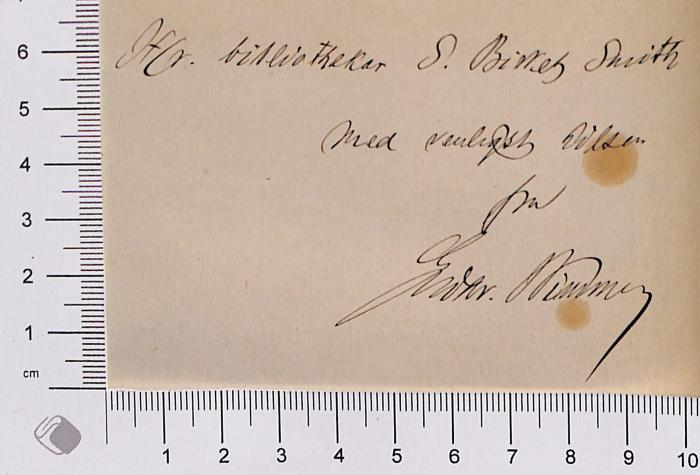 Hr. bibliothekar S. Birket Smith
med venligst hilsen
fra
6
5
4
3
2
1
cm
1 2 3 4 5 6 7 8 9 10